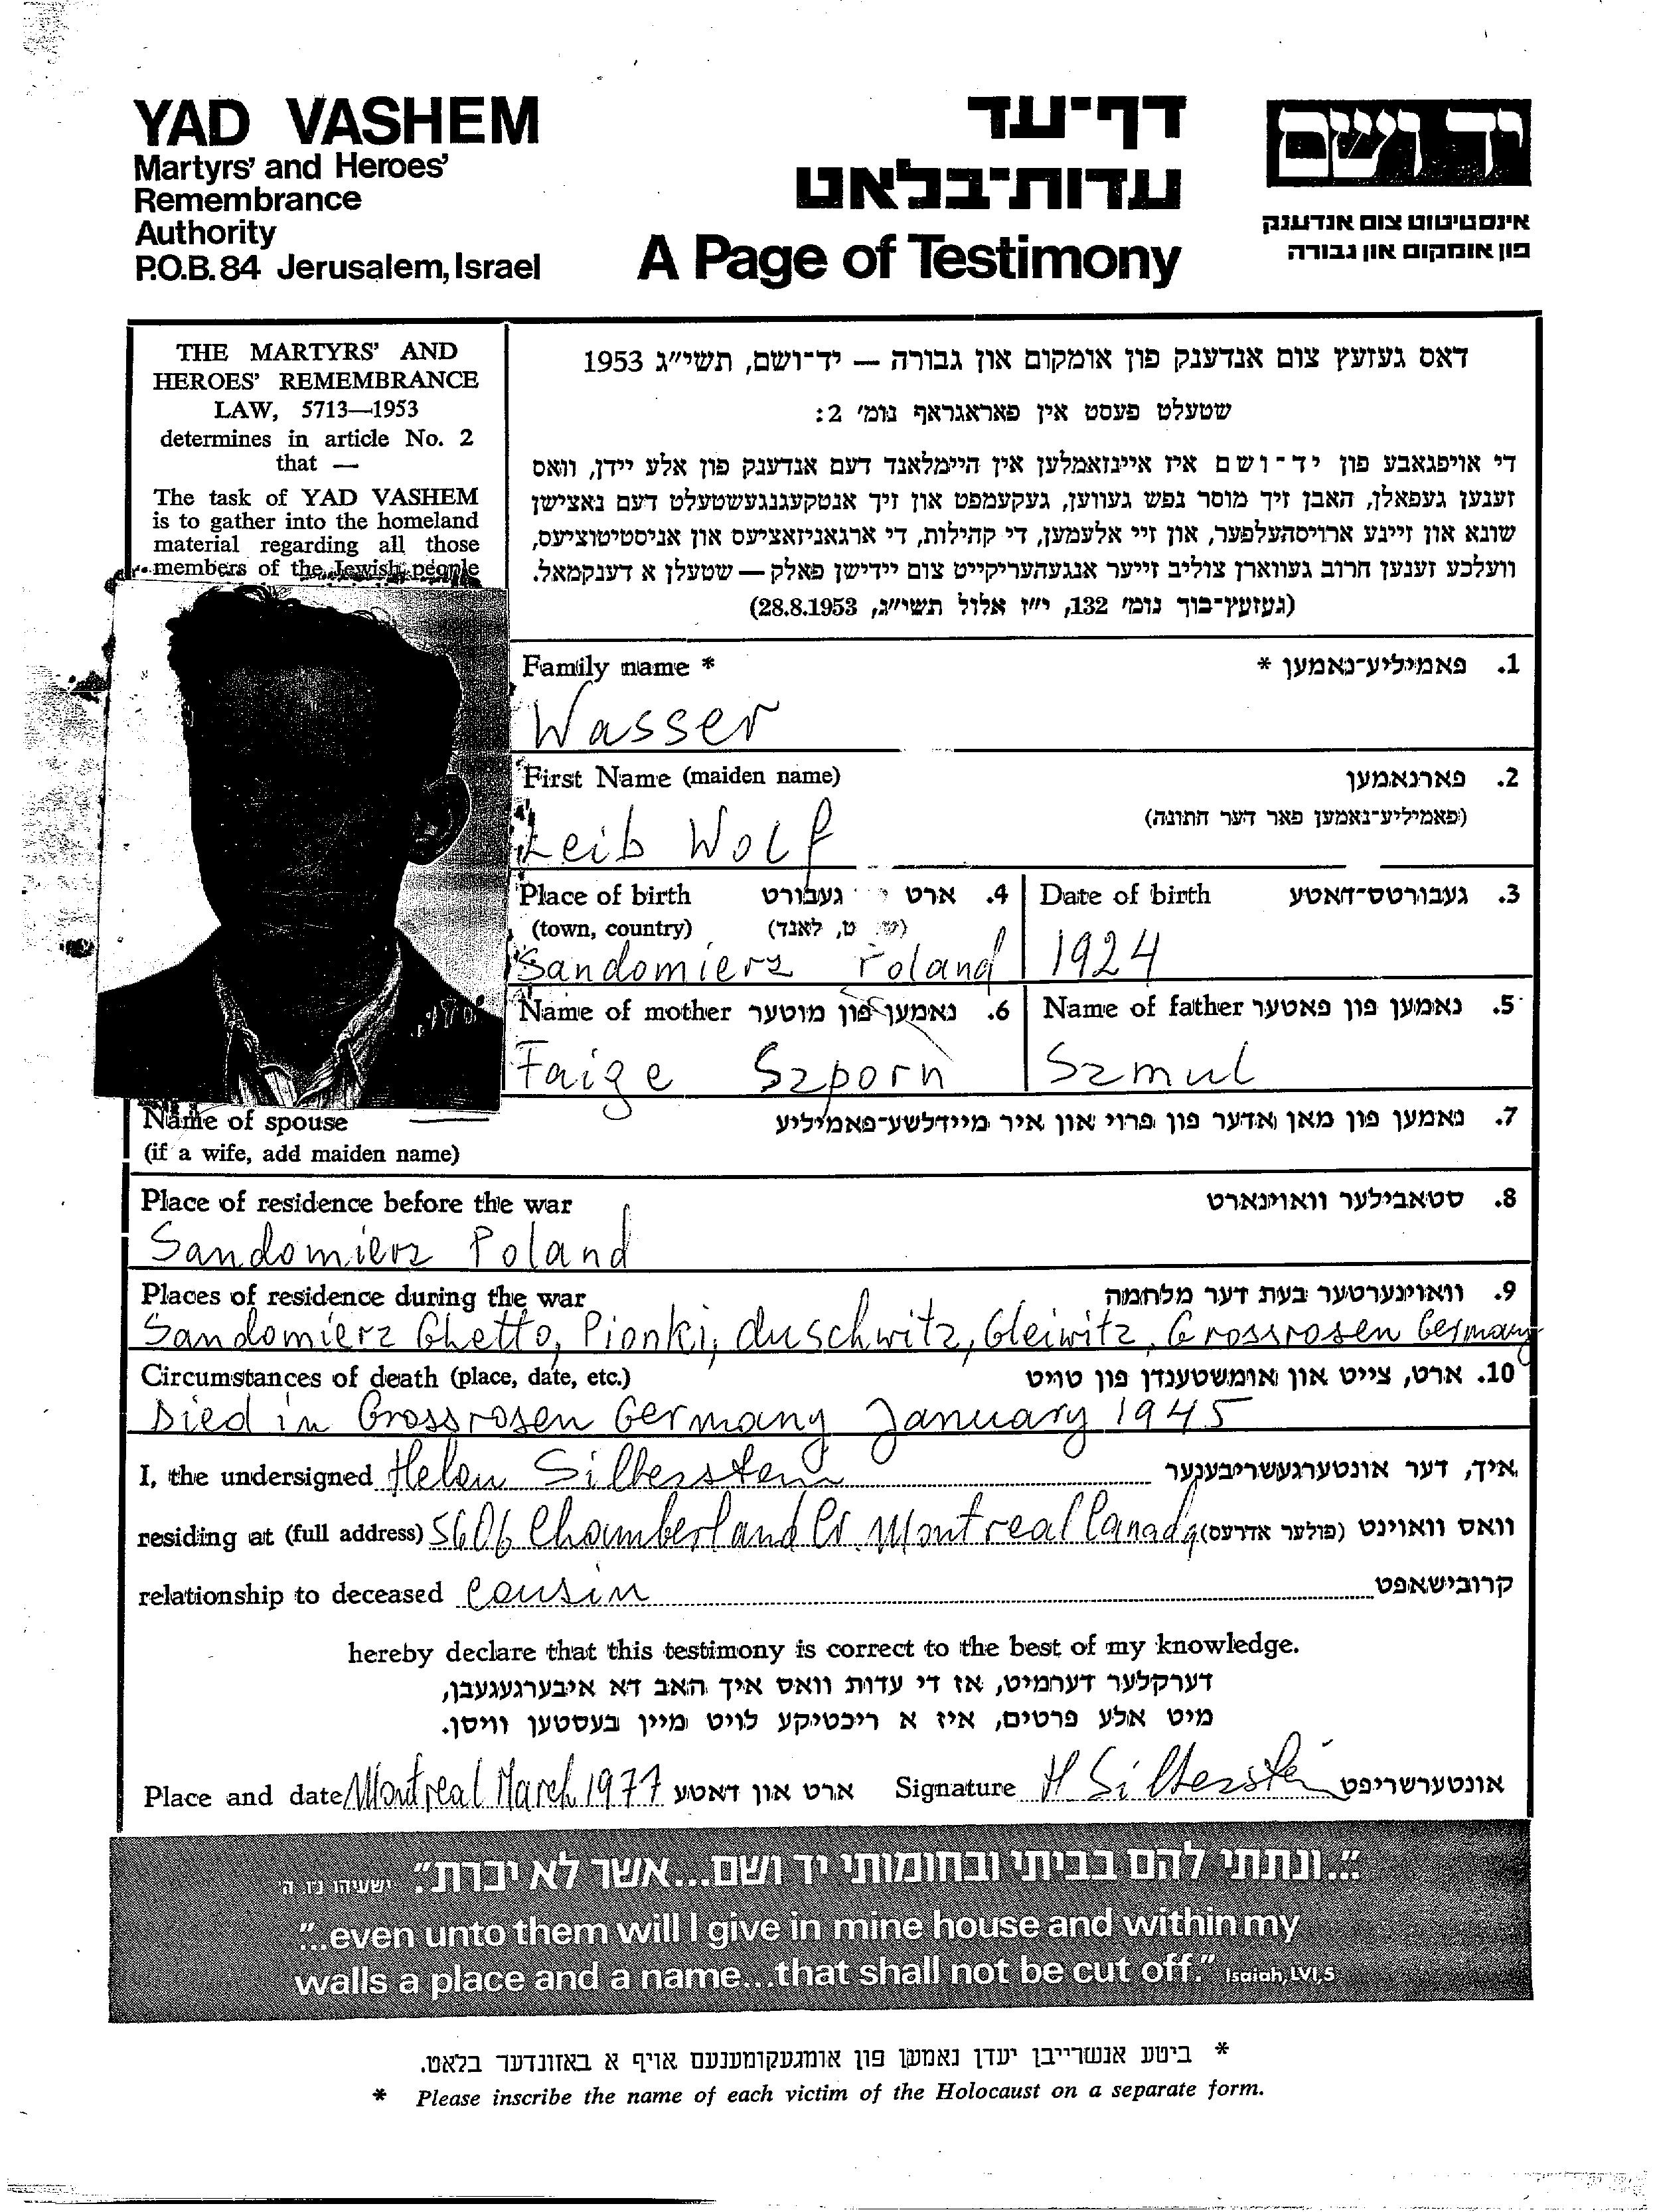 YAD VASHEM
Martyrs' and Heroes'
Remembrance
Authority
P.O.B. 84 Jerusalem, Israel
דף־עד
עדות־בלאט
A Page of Testimony
יד ושם
אינסטיטוט צום אנדענק
פון אומקום און גבורה
THE MARTYRS' AND
HEROES' REMEMBRANCE
LAW, 5713—1953
determines in article No. 2
that —
The task of YAD VASHEM
is to gather into the homeland
material regarding all those
members of the Jewish people
דאס געזעץ צום אנדענק פון אומקום און גבורה — יד־ושם, תשי״ג 1953
שטעלט פעסט אין פאראגראף נומ׳ 2:
די אויפגאבע פון יד־ושם איז איינזאמלען אין היימלאנד דעם אנדענק פון אלע יידן, וואס
זענען געפאלן, האבן זיך מוסר נפש געווען, געקעמפט און זיך אנטקעגנגעשטעלט דעם נאצישן
שונא און זיינע ארויסהעלפער, און זיי אלעמען, די קהילות, די ארגאניזאציעס און אניסטיטוציעס,
וועלכע זענען חרוב געווארן צוליב זייער אנגעהעריקייט צום יידישן פאלק — שטעלן א דענקמאל.
(געזעץ־בוך נומ׳ 132, י״ז אלול תשי״ג, 28.8.1953)
Family name * פאמיליע־נאמען * .1
Wasser
First Name (maiden name) פארנאמען .2
(פאמיליע־נאמען פאר דער חתונה)
Leib Wolf
Place of birth ארט געבורט .4
(town, country) לאנד)
Sandomierz Poland
Date of birth געבורטס־דאטע .3
1924
Name of mother נאמען פון מוטער .6
Faige Szporn
Name of father נאמען פון פאטער .5
Szmul
Name of spouse — נאמען פון מאן אדער פון פרוי און איר מיידלשע־פאמיליע .7
(if a wife, add maiden name)
Place of residence before the war סטאבילער וואוינארט .8
Sandomierz Poland
Places of residence during the war וואוינערטער בעת דער מלחמה .9
Sandomierz Ghetto, Pionki, Auschwitz, Gleiwitz, Grossrosen Germany
Circumstances of death (place, date, etc.) ארט, צייט און אומשטענדן פון טויט .10
Died in Grossrosen Germany January 1945
I, the undersigned Helen Silberstein איך, דער אונטערגעשריבענער
residing at (full address) 5606 Chamberland Cr. Montreal Canada וואס וואוינט (פולער אדרעס)
relationship to deceased Cousin קרובישאפט
hereby declare that this testimony is correct to the best of my knowledge.
דערקלער דערמיט, אז די עדות וואס איך האב דא איבערגעגעבן,
מיט אלע פרטים, איז א ריכטיקע לויט מיין בעסטען וויסן.
Place and date Montreal March 1977 ארט און דאטע Signature H Silberstein אונטערשריפט
"...ונתתי להם בביתי ובחומותי יד ושם...אשר לא יכרת." ישעיהו נ״ו, ה׳
"...even unto them will I give in mine house and within my
walls a place and a name...that shall not be cut off." Isaiah, LVI, 5
* ביטע אנשרייבן יעדן נאמען פון אומגעקומענעם אויף א באזונדער בלאט.
* Please inscribe the name of each victim of the Holocaust on a separate form.